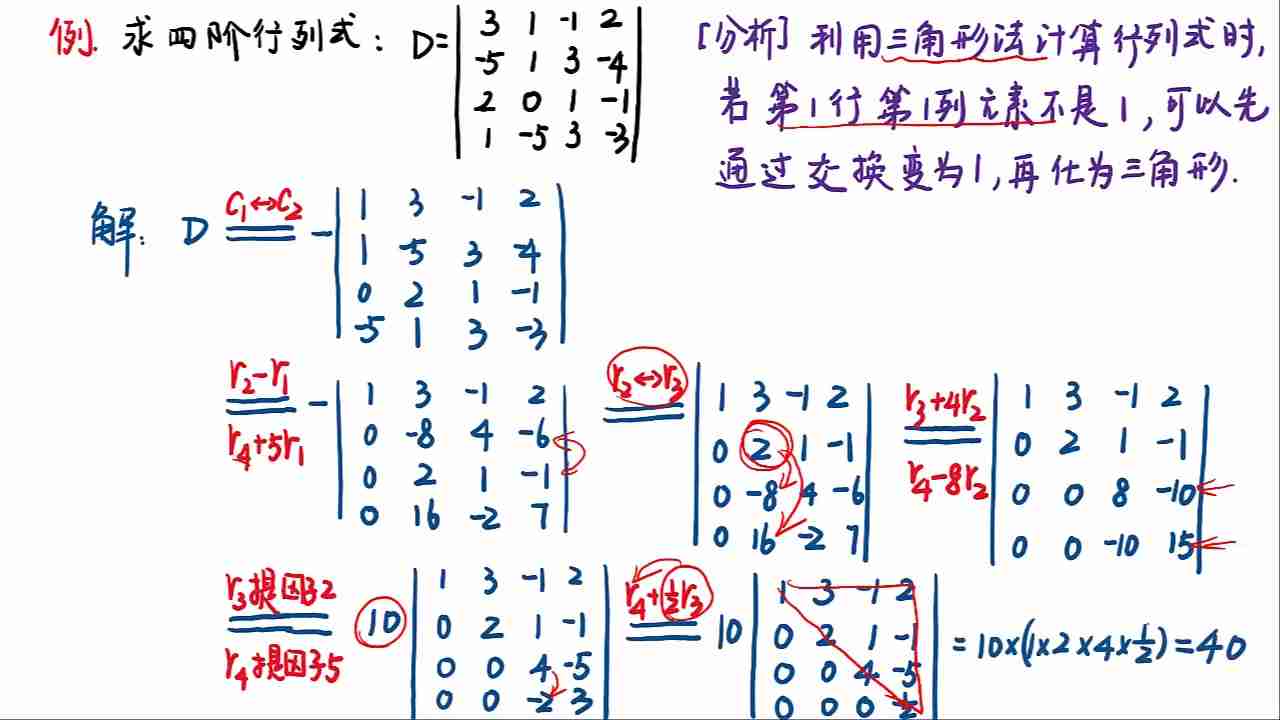 例. 求四阶行列式: D=
3 1 -1 2
-5 1 3 -4
2 0 1 -1
1 -5 3 -3
[分析] 利用三角形法计算行列式时,
若第1行第1列元素不是1,可以先
通过交换变为1,再化为三角形.
解: D C₁↔C₂ = -
1 3 -1 2
1 -5 3 -4
0 2 1 -1
-5 1 3 -3
r₂-r₁ r₄+5r₁ = -
1 3 -1 2
0 -8 4 -6
0 2 1 -1
0 16 -2 7
r₂↔r₃ =
1 3 -1 2
0 2 1 -1
0 -8 4 -6
0 16 -2 7
r₃+4r₂ r₄-8r₂ =
1 3 -1 2
0 2 1 -1
0 0 8 -10
0 0 -10 15
r₃提因子2 r₄提因子5 = 10
1 3 -1 2
0 2 1 -1
0 0 4 -5
0 0 -2 3
r₄+½r₃ = 10
1 3 -1 2
0 2 1 -1
0 0 4 -5
0 0 0 ½
=10×(1×2×4×½)=40